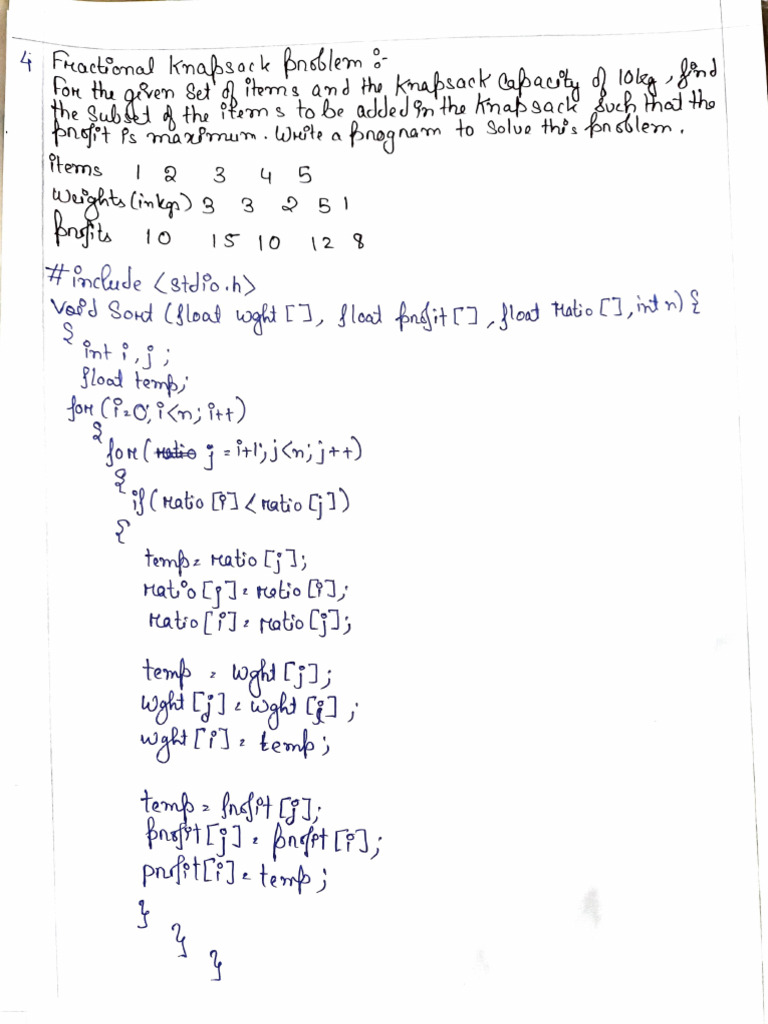 4. Fractional Knapsack Problem :-
For the given set of items and the Knapsack Capacity of 10kg, find
the subset of the items to be added in the Knapsack such that the
profit is maximum. Write a program to solve this problem.
items 1 2 3 4 5
Weights (in kgs) 3 3 2 5 1
Profits 10 15 10 12 8
#include <stdio.h>
Void Sort (float wght [ ], float profit [ ], float ratio [ ], int n) {
{
int i, j ;
float temp;
for (i=0; i<n; i++)
{
for ( j = i+1; j<n; j++)
{
if (ratio [i] < ratio [j])
{
temp = ratio [j];
ratio [j] = ratio [i];
ratio [i] = ratio [j];
temp = wght [j];
wght [j] = wght [i] ;
wght [i] = temp;
temp = profit [j];
profit [j] = profit [i];
profit [i] = temp;
}
}
}